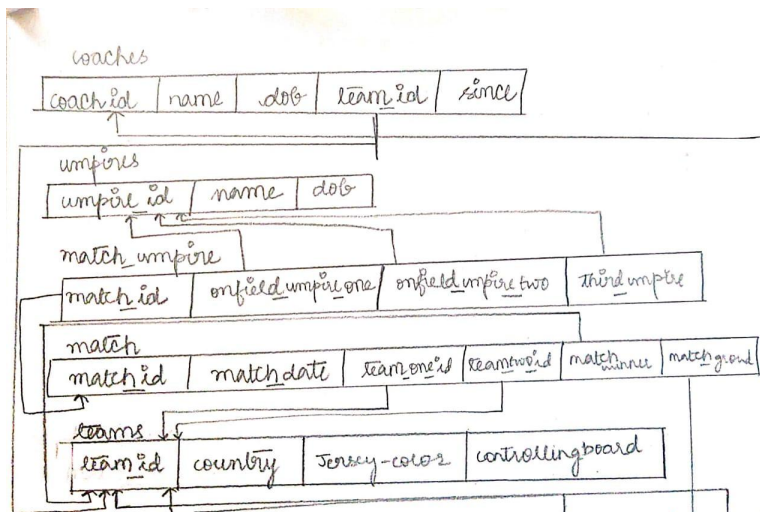 coaches
coach_id name dob team_id since
umpires
umpire_id name dob
match_umpire
match_id onfield_umpire_one onfield_umpire_two third_umpire
match
match_id match_date team_one_id team_two_id match_winner match_ground
teams
team_id country Jersey-color controllingboard